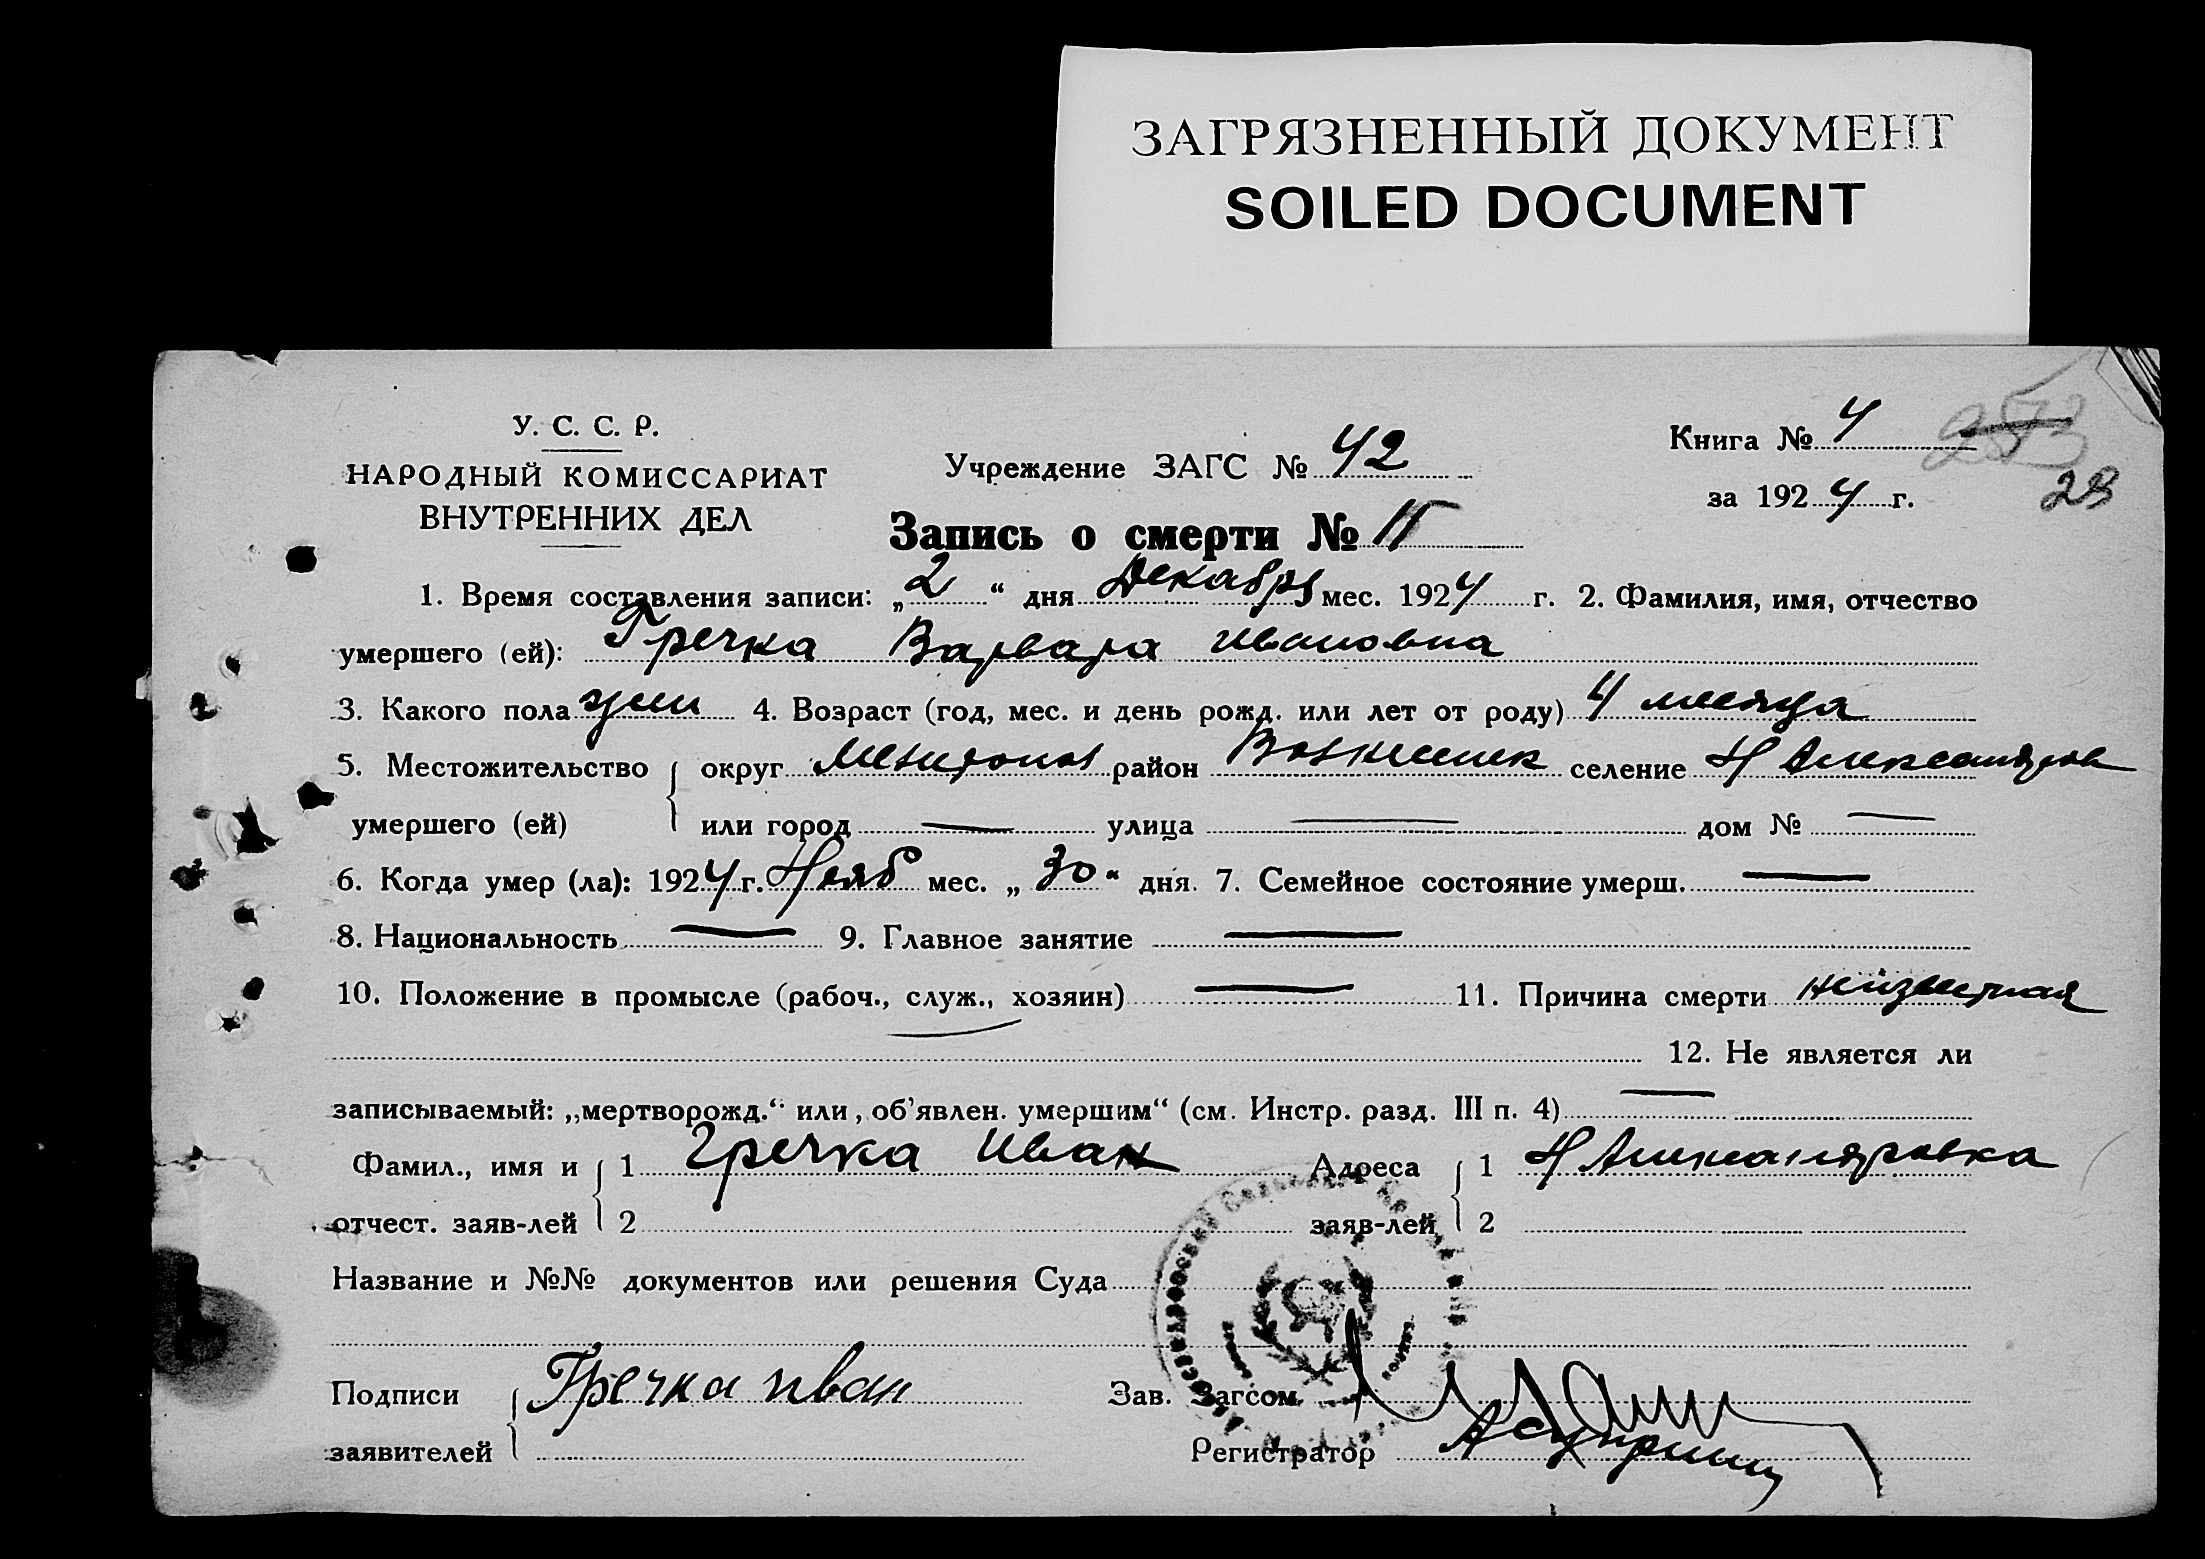 ЗАГРЯЗНЕННЫЙ ДОКУМЕНТ
SOILED DOCUMENT
У. С. С. Р.
НАРОДНЫЙ КОМИССАРИАТ
ВНУТРЕННИХ ДЕЛ
Учреждение ЗАГС № 42
Книга № 4
за 1924 г.
28
Запись о смерти №
1. Время составления записи: „2“ дня Декабря мес. 1924 г. 2. Фамилия, имя, отчество
умершего (ей): Гречка Варвара Ивановна
3. Какого пола жен 4. Возраст (год, мес. и день рожд. или лет от роду) 4 месяца
5. Местожительство округ Мелитопол район Вознесенск селение Н Александров
умершего (ей) или город — улица — дом № —
6. Когда умер (ла): 1924 г. Нояб мес. „30“ дня. 7. Семейное состояние умерш. —
8. Национальность — 9. Главное занятие —
10. Положение в промысле (рабоч., служ., хозяин) — 11. Причина смерти неизвестная
12. Не является ли
записываемый: „мертворожд.“ или „об'явлен. умершим“ (см. Инстр. разд. III п. 4) —
Фамил., имя и 1 Гречка Иван Адреса 1 Н Александровка
отчест. заяв-лей 2 заяв-лей 2
Название и №№ документов или решения Суда
Подписи Гречка иван Зав. Загсом
заявителей Регистратор